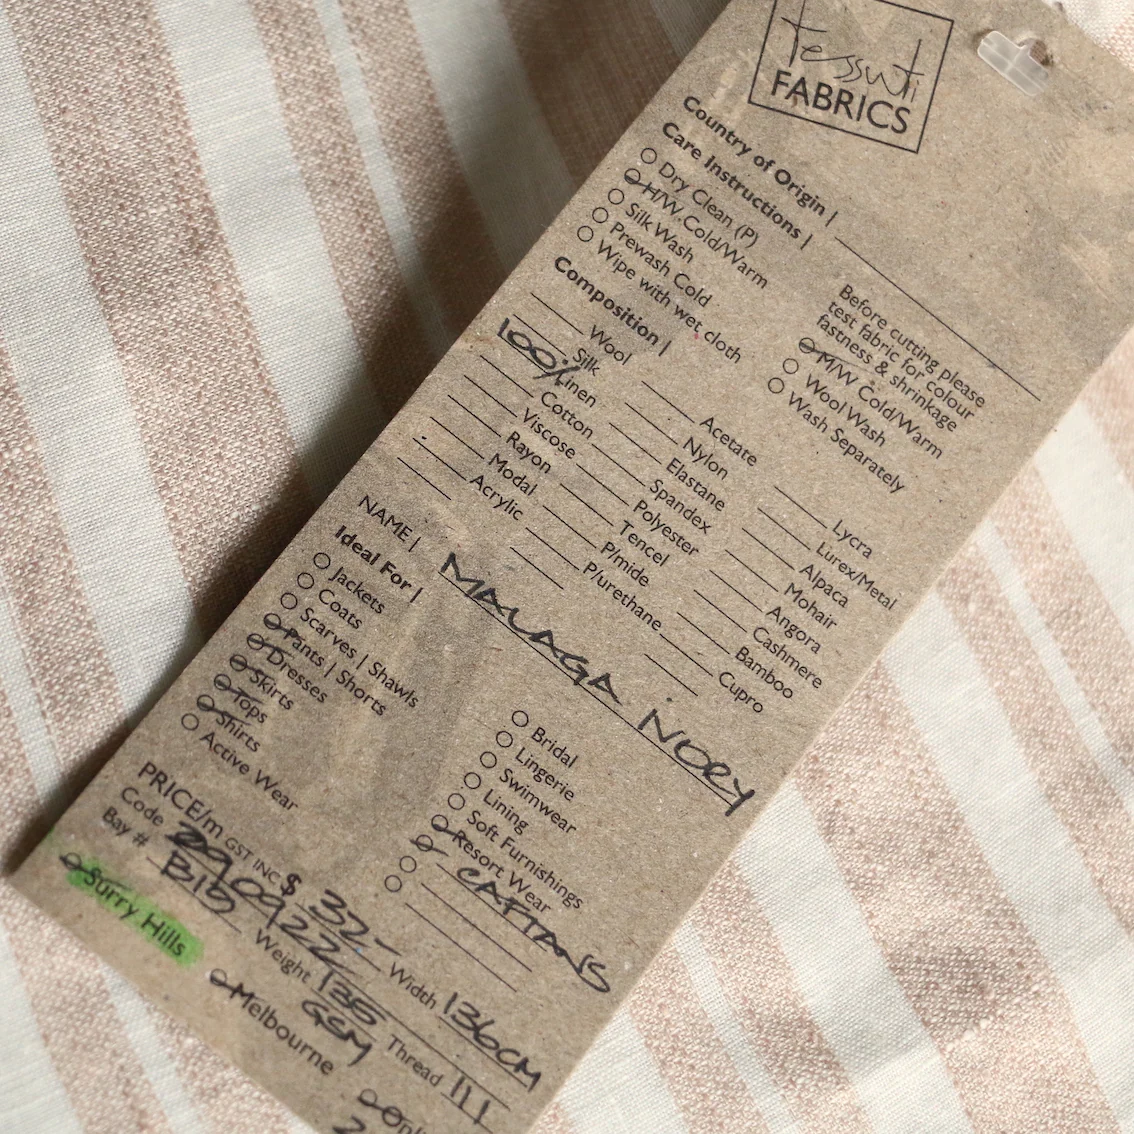 tessuti
FABRICS
Country of Origin |
Care Instructions |
Dry Clean (P)
H/W Cold/Warm
Silk Wash
Prewash Cold
Wipe with wet cloth
Before cutting please
test fabric for colour
fastness & shrinkage
M/W Cold/Warm
Wool Wash
Wash Separately
Composition |
Wool
Silk
100% Linen
Cotton
Viscose
Rayon
Modal
Acrylic
Acetate
Nylon
Elastane
Spandex
Polyester
Tencel
P/mide
P/urethane
Lycra
Lurex/Metal
Alpaca
Mohair
Angora
Cashmere
Bamboo
Cupro
NAME | MALAGA IVORY
Ideal For |
Jackets
Coats
Scarves | Shawls
Pants | Shorts
Dresses
Skirts
Tops
Shirts
Active Wear
Bridal
Lingerie
Swimwear
Lining
Soft Furnishings
Resort Wear
CAFTANS
PRICE/m GST INC $ 32- Width 136CM
Code 2909922 Weight 135 GSM Thread 111
Bay # B1B
Surry Hills
Melbourne